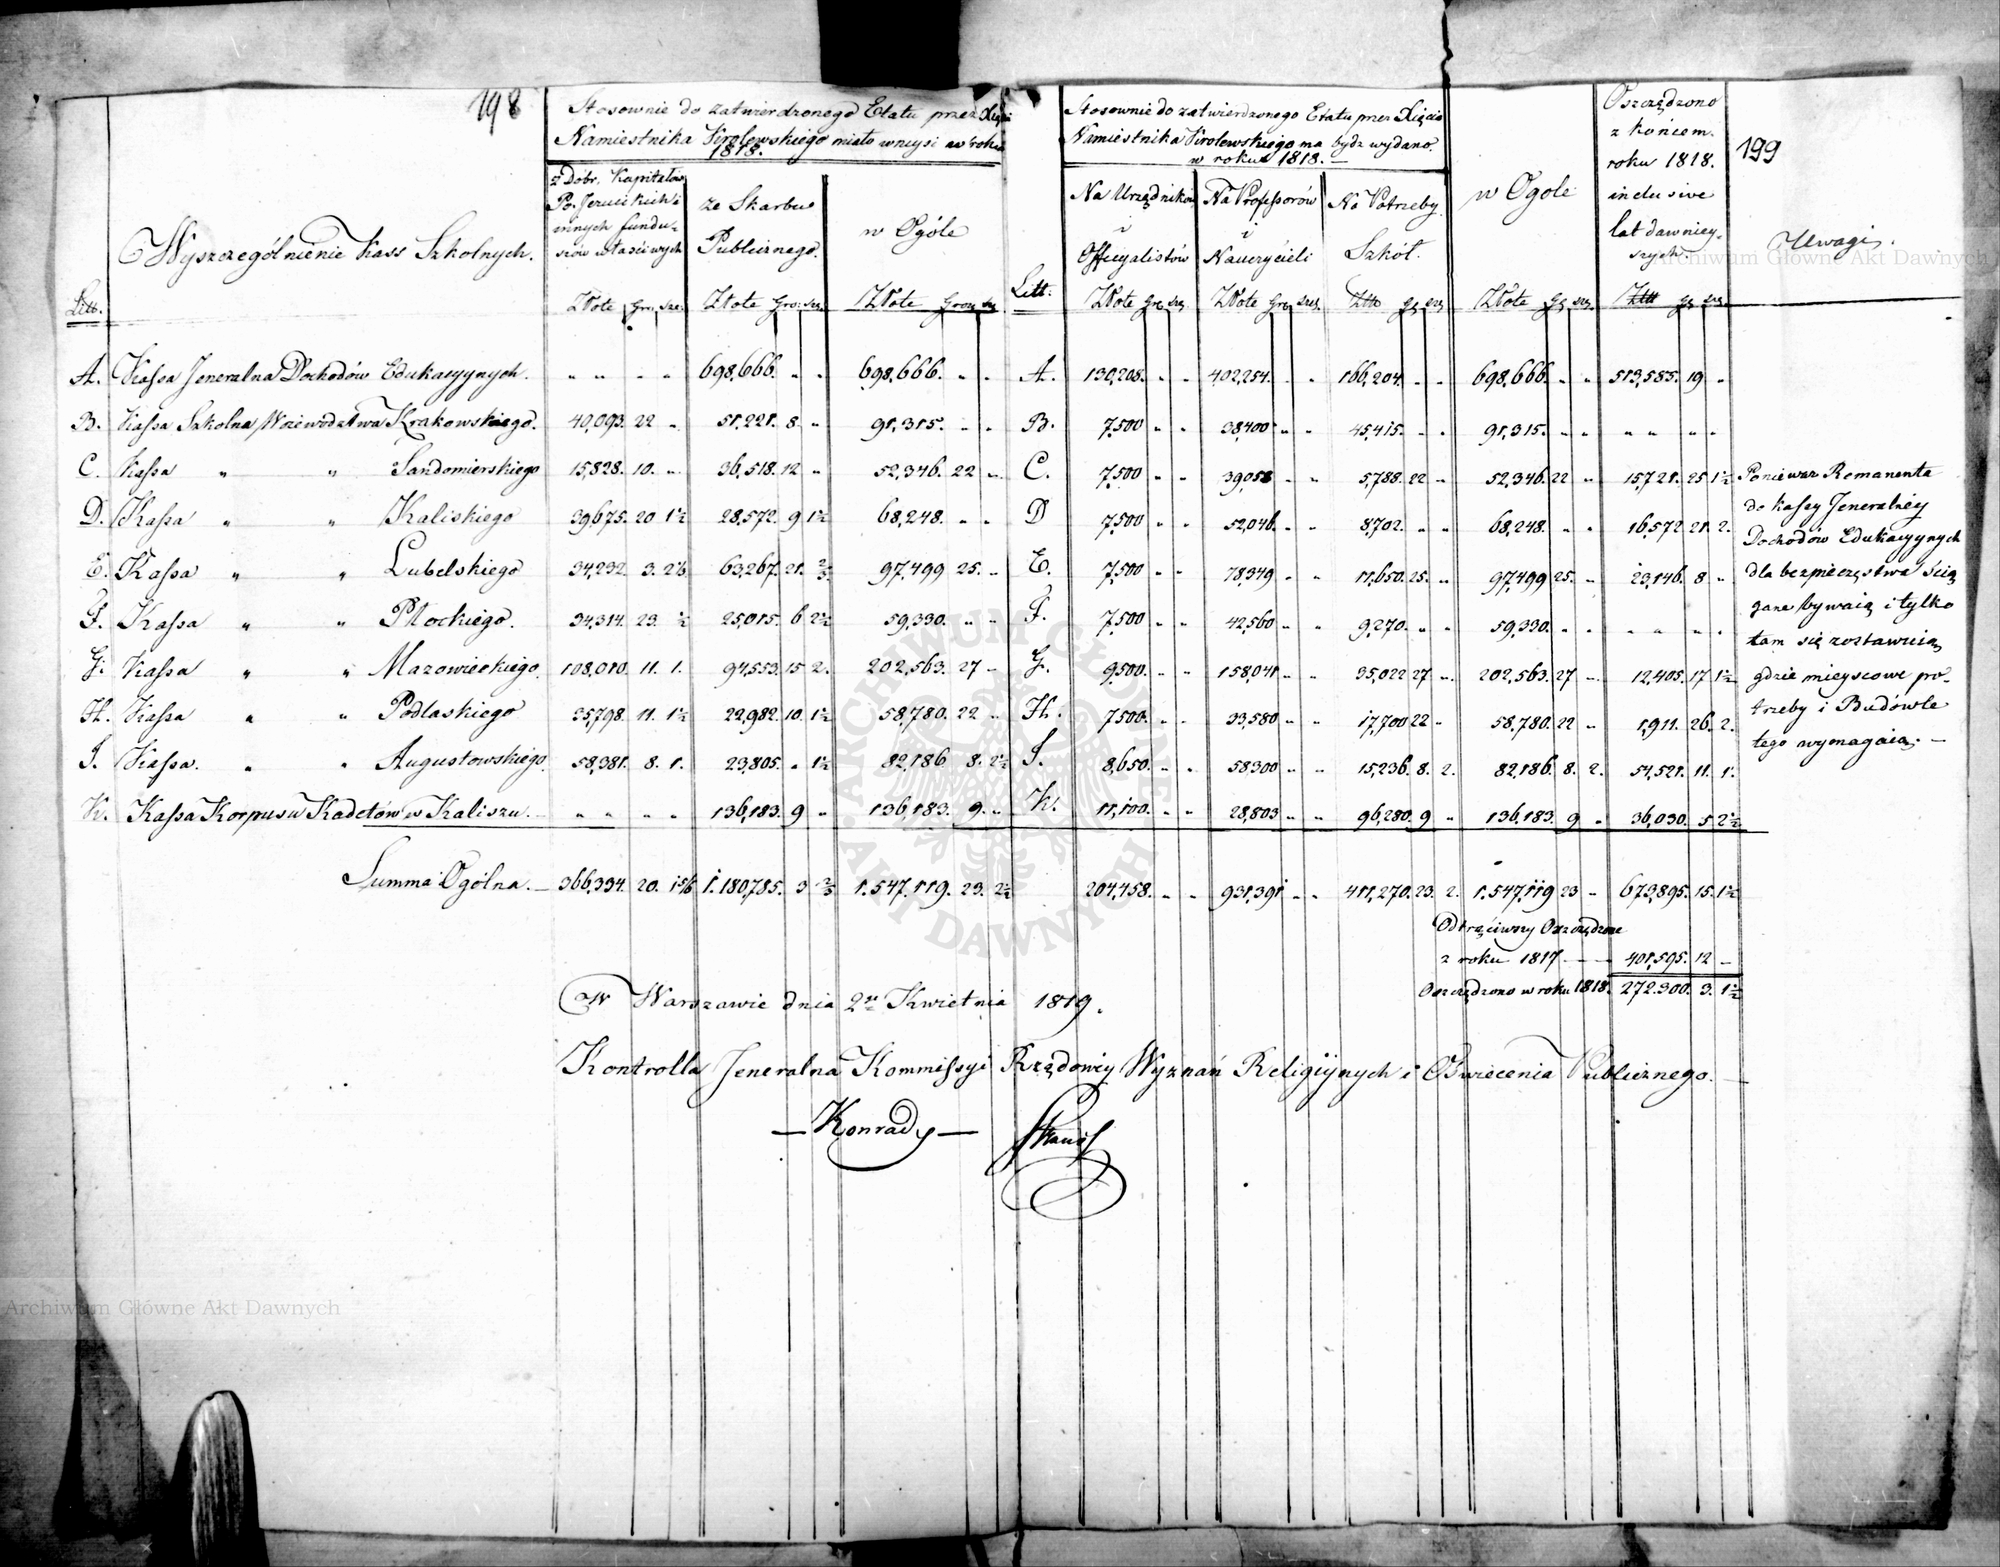 198
199
Stosownie do zatwierdzonego Etatu przez Xięcia
Namiestnika Królewskiego miało wnijsi w roku
1818.
Stosownie do zatwierdzonego Etatu przez Xięcia
Namiestnika Królewskiego ma bydź wydano
w roku 1818.
Oszczędzono
z końcem
roku 1818.
inclusive
lat dawniey-
szych.
Litt.
Wyszczególnienie Kass Szkolnych.
z Dóbr, Kapitałów
Po-Jezuickich i
innych fundu-
szów własciwych
Złote gro: sze:
ze Skarbu
Publicznego.
Złote Gro: sze.
w Ogóle
Złote Grosz sz.
Litt:
Na Urzędników
i
Officyalistów
Złote Gr. sze.
Na Professorów
i
Nauczycieli
Złote gr. szel.
Na Potrzeby
Szkół.
Złt gr szę
w Ogole
Złote Gr sze.
Złt gr sze.
Uwagi.
A. Kassa Jeneralna Dochodów Edukacyynych. „ „ „ „ 698,666. „ „ 698,666. „ „ A. 130,208. „ „ 402,254. „ „ 166,204. „ „ 698,666. „ „ 513,585. 19 „
B. Kassa Szkolna Woiewodztwa Krakowskiego. 40,093. 22 „ 51,221. 8 „ 91,315. „ „ B. 7,500 „ „ 38,400 „ „ 45,415. „ „ 91,315. „ „ „ „ „ „
C. Kassa „ „ Sandomierskiego 15,828. 10. „ 36,518. 12 „ 52,346. 22 „ C. 7,500 „ „ 39,058 „ „ 5,788. 22 „ 52,346. 22 „ 15,721. 25 1½
D. Kassa „ „ Kaliskiego 39,675. 20 1½ 28,572. 9 1½ 68,248. „ „ D 7,500 „ „ 52,046. „ „ 8,702. „ „ 68,248. „ „ 16,572 21. 2.
E. Kassa „ „ Lubelskiego 34,232. 3. 63,267. 21. 97,499 25. „ E. 7,500 „ „ 78,349 „ „ 11,650. 25. „ 97,499 25. „ 23,146. 8 „
F. Kassa „ „ Płockiego. 34,314. 23. ½ 25,015. 6 2½ 59,330. „ „ F. 7,500 „ „ 42,560 „ „ 9,270. „ „ 59,330. „ „ „ „ „ „
G. Kassa „ „ Mazowieckiego. 108,010. 11. 1. 94,553. 15 2. 202,563. 27 „ G. 9,500. „ „ 158,041 „ „ 35,022 27 „ 202,563. 27 „ 12,405. 17 1½
H. Kassa „ „ Podlaskiego 35,798. 11. 1½ 22,982. 10. 1½ 58,780. 22 „ H. 7,500. „ „ 33,580 „ „ 17,700 22 „ 58,780. 22 „ 1,911. 26. 2.
I. Kassa. „ „ Augustowskiego. 58,381. 8. 1. 23,805. „ 1½ 82,186 8. 2½ I. 8,650. „ „ 58,300 „ „ 15,236. 8. 2. 82,186. 8. 2. 54,521. 11. 1.
K. Kassa Korpusu Kadetów w Kaliszu. „ „ „ „ 136,183. 9 „ 136,183. 9. „ K. 11,100. „ „ 28,803 „ „ 96,280. 9 „ 136,183. 9 „ 36,030. 5 2½
Ponieważ Remanenta
do kassy Jeneralnéy
Dochodów Edukacyynych
dla bezpieczęstwa ścią
gane bywaią i tylko
tam się zostawuią
gdzie mieyscowe po-
trzeby i Budowle
tego wymagaią. —
Summa Ogólna. — 366,334. 20. 1.180,785. 3 1.547,119. 23. 2½ 204,458. „ „ 931,391 „ „ 411,270. 23. 2. 1.547,119 23 „ 673,895. 15. 1½
Odtrąciwszy Oszczędzone
z roku 1817 — — 401,595. 12 —
Oszczędzono w roku 1818. 272,300. 3. 1½
W Warszawie dnia 2go Kwietnia 1819.
Kontrolla Jeneralna Kommissyi Rządowéy Wyznań Religiynych i Oświecenia Publicznego. —
— Konrady —
Archiwum Główne Akt Dawnych
Archiwum Główne Akt Dawnych
ARCHIWUM GŁÓWNE AKT DAWNYCH